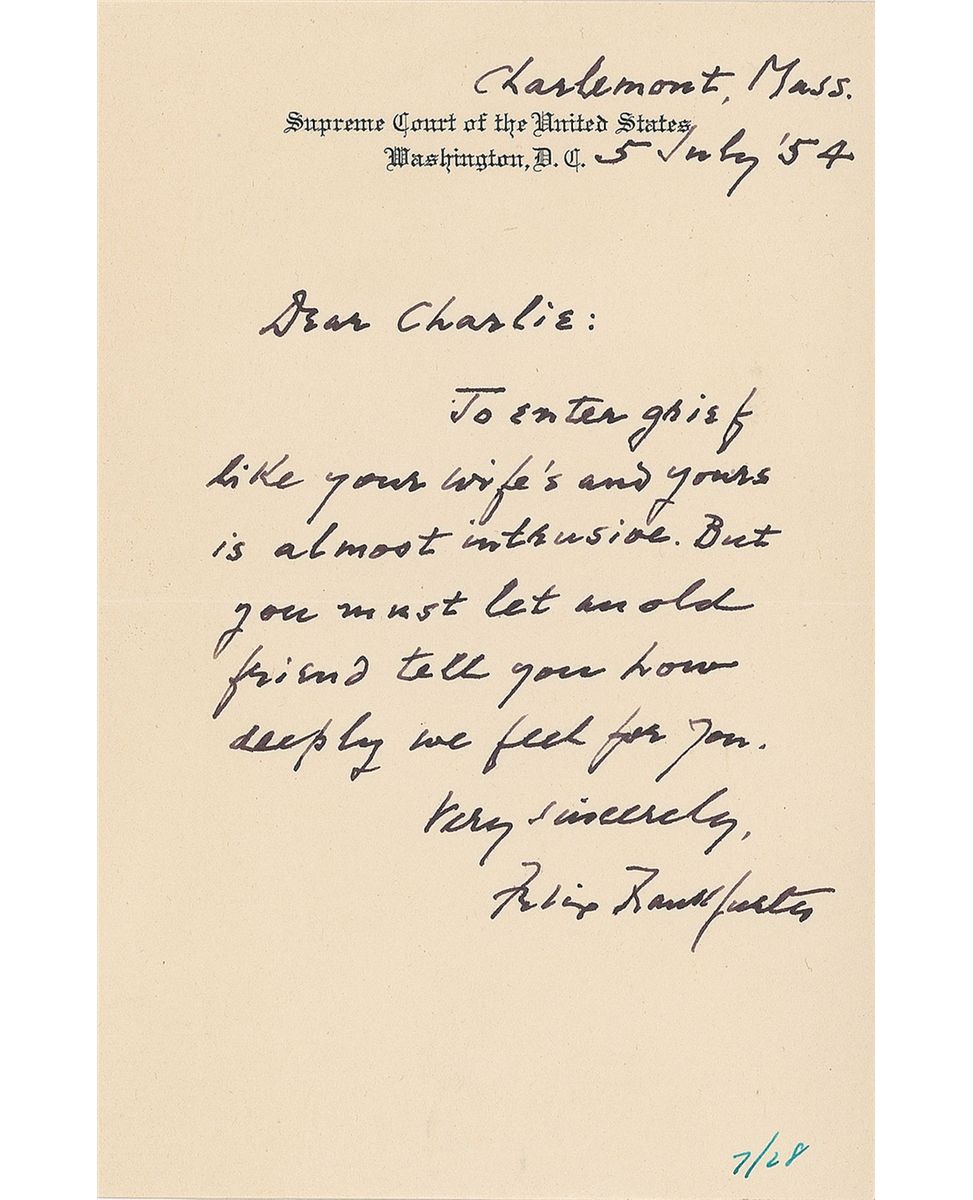 Charlemont, Mass.
Supreme Court of the United States
Washington, D. C. 5 July '54
Dear Charlie:
To enter grief
like your wife's and yours
is almost intrusive. But
you must let an old
friend tell you how
deeply we feel for you.
Very sincerely,
Felix Frankfurter
7/28